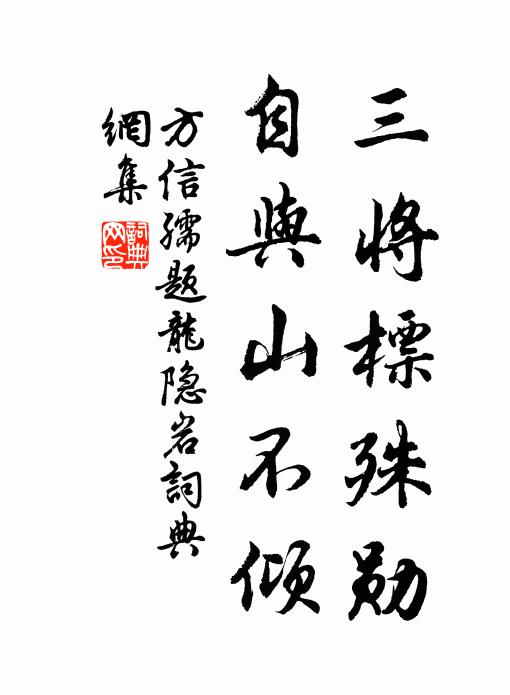 三将標殊勋
自與山不倾
方信孺题龍隐岩詞典
網集
詞典网印